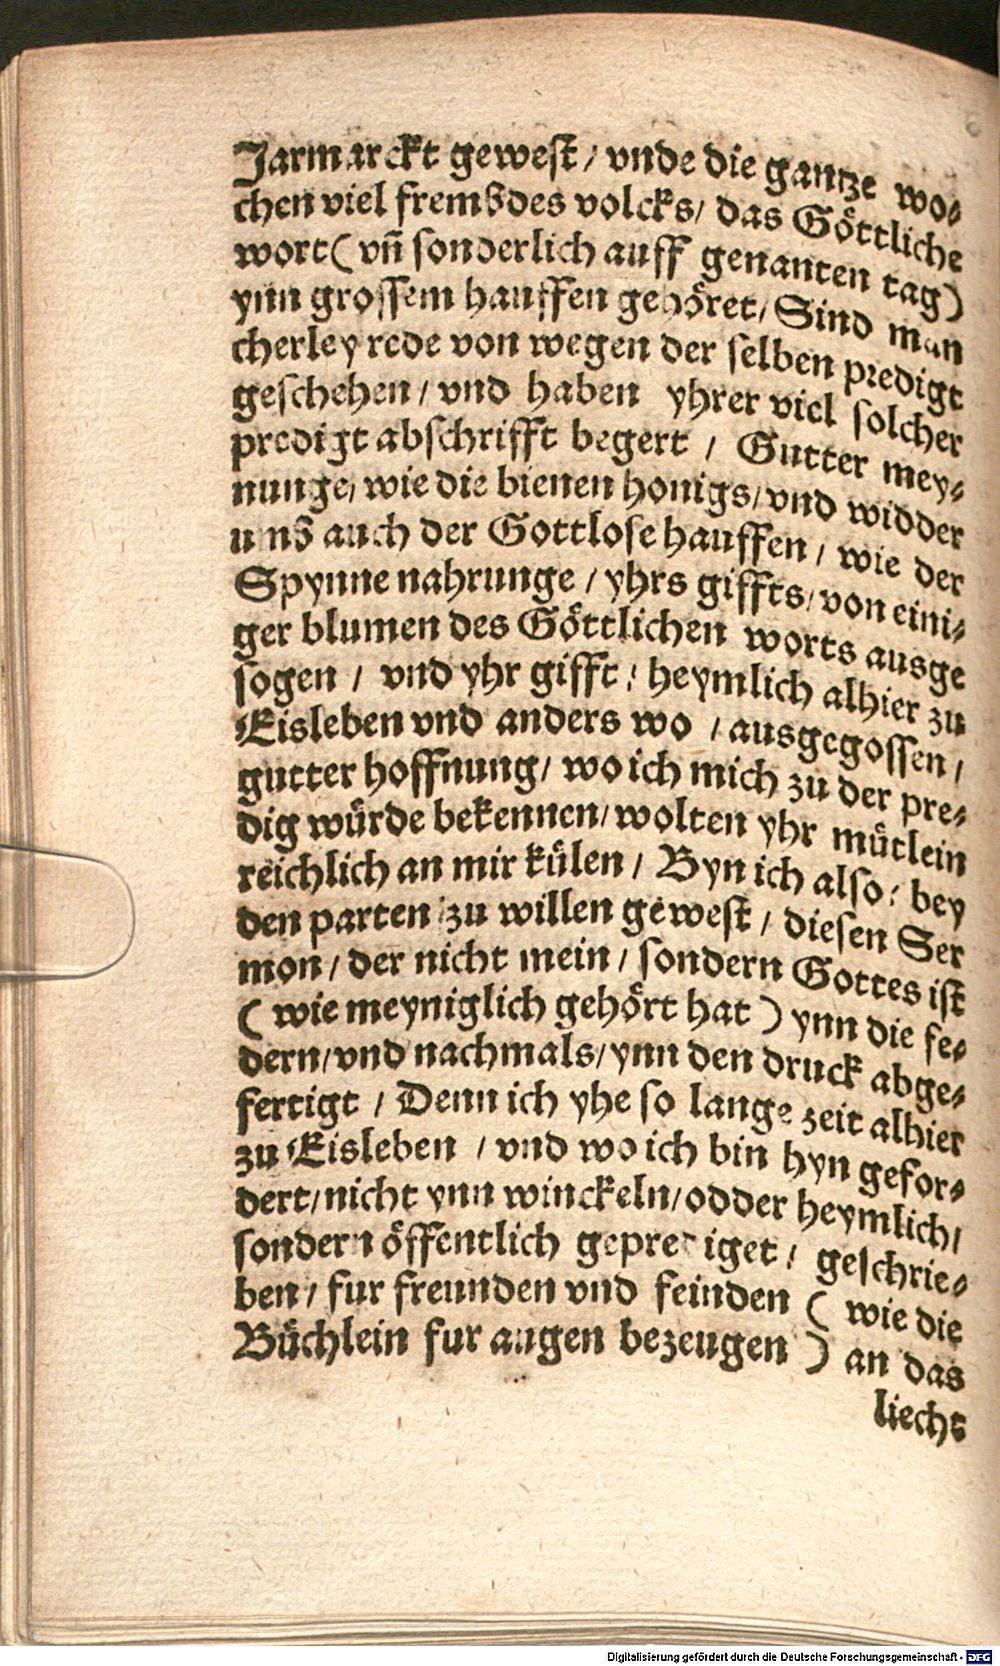 Jarmarckt gewest / vnde die gantze wo-
chen viel frembdes volcks / das Göttliche
wort ( vñ sonderlich auff genanten tag )
ynn grossem hauffen gehöret / Sind man
cherley rede von wegen der selben predigt
geschehen / vnd haben yhrer viel solcher
predigt abschrifft begert / Gutter mey-
nunge / wie die bienen honigs / vnd widder
umb auch der Gottlose hauffen / wie der
Spynne nahrunge / yhrs giffts / von eini-
ger blumen des Göttlichen worts ausge
sogen / vnd yhr gifft / heymlich alhier zu
Eisleben vnd anders wo / ausgegossen /
gutter hoffnung / wo ich mich zu der pre-
dig würde bekennen / wolten yhr mütlein
reichlich an mir külen / Byn ich also / bey
den parten zu willen gewest / diesen Ser
mon / der nicht mein / sondern Gottes ist
( wie meyniglich gehört hat ) ynn die fe-
dern / vnd nachmals / ynn den druck abge-
fertigt / Denn ich yhe so lange zeit alhier
zu Eisleben / vnd wo ich bin hyn gefor-
dert / nicht ynn winckeln / odder heymlich /
sondern öffentlich geprediget / geschrie-
ben / fur freunden vnd feinden ( wie die
Büchlein fur augen bezeugen ) an das
liecht
Digitalisierung gefördert durch die Deutsche Forschungsgemeinschaft - DFG